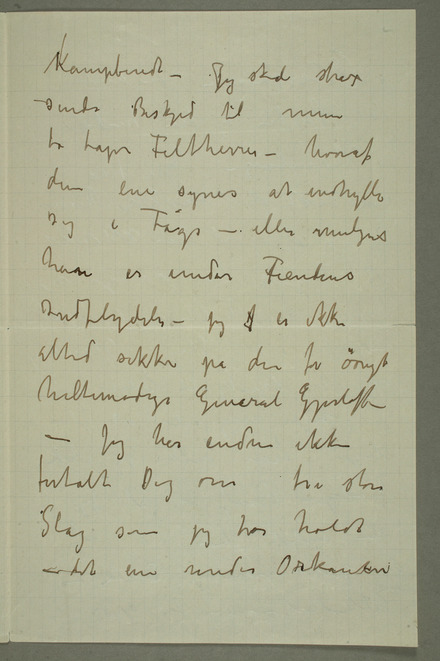 Kampberedt – Jeg skal strax
sende Besked til mine
to tapre Feltherrer – hvoraf
den ene synes at indhylle
sig i Tåge – eller muligens
han er under Fiendens
indflydelse – jeg er ikke
altid sikker på den for øvrigt
heltemodige General
– Jeg har endnu ikke
fortalt Dig om to store
Slag som jeg har holdt
– det ene under Orkanen